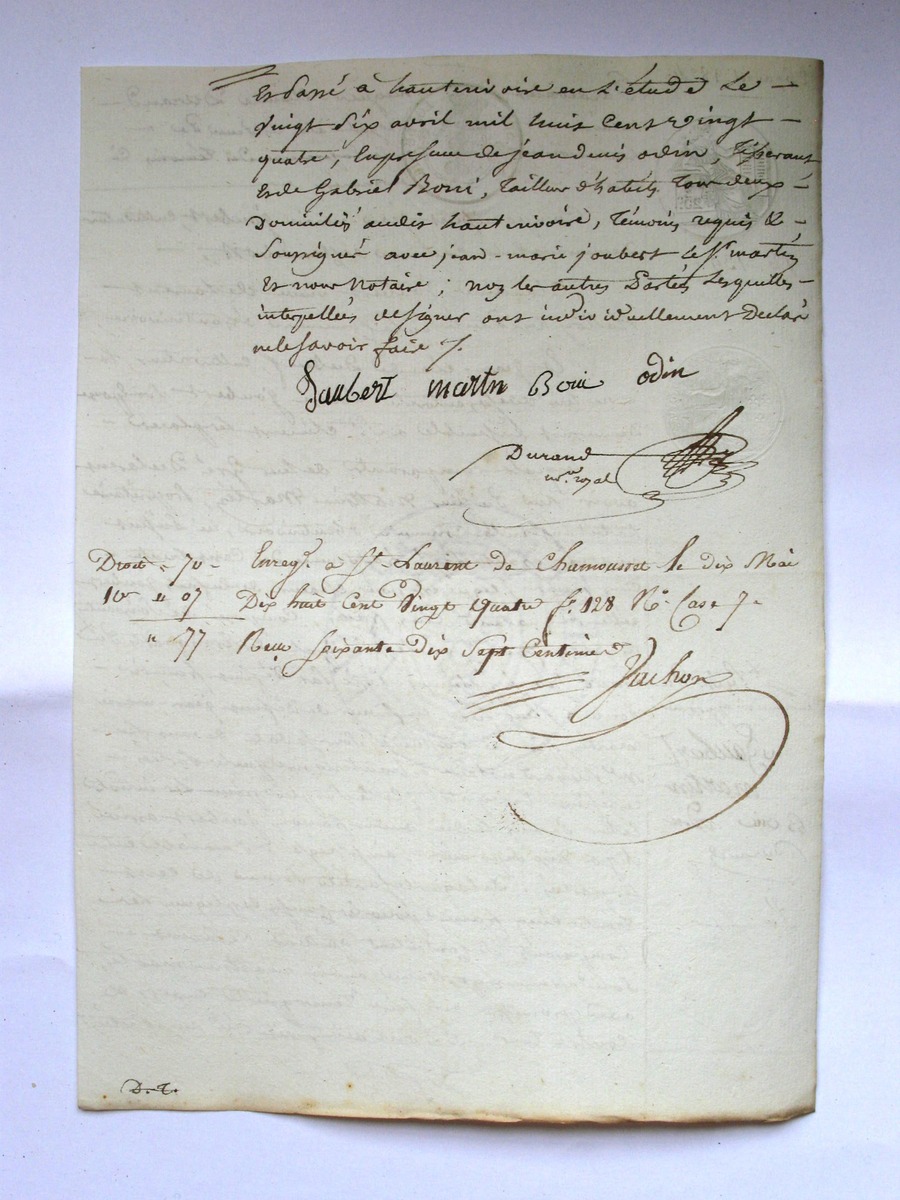 Et Passé à hauterivoire en l'étude Le
vingt Six avril mil huit Cent vingt
quatre, En présence de jean denis odin, Tisserant
Et de Gabriel Boni, Tailleur d'habits Tous deux
Domiciliés audit hauterivoire, Témoins requis &
Soussignés avec jean-marie joubert le Sr. martin
Et nous Notaire ; non les autres Parties Lesquelles
interpellées de signer ont individuellement Déclaré
ne le savoir faire /.
Jaubert martin Boni odin
Durand
nre. royal
Droit " 70 Enregé. a St. Laurent de Chamousset le dix Mai
10e " 07 Dix huit Cent Vingt quatre fo. 128 Ro. Case 7
" 77 Reçu soixante dix Sept Centimes
Vachon
D. T.